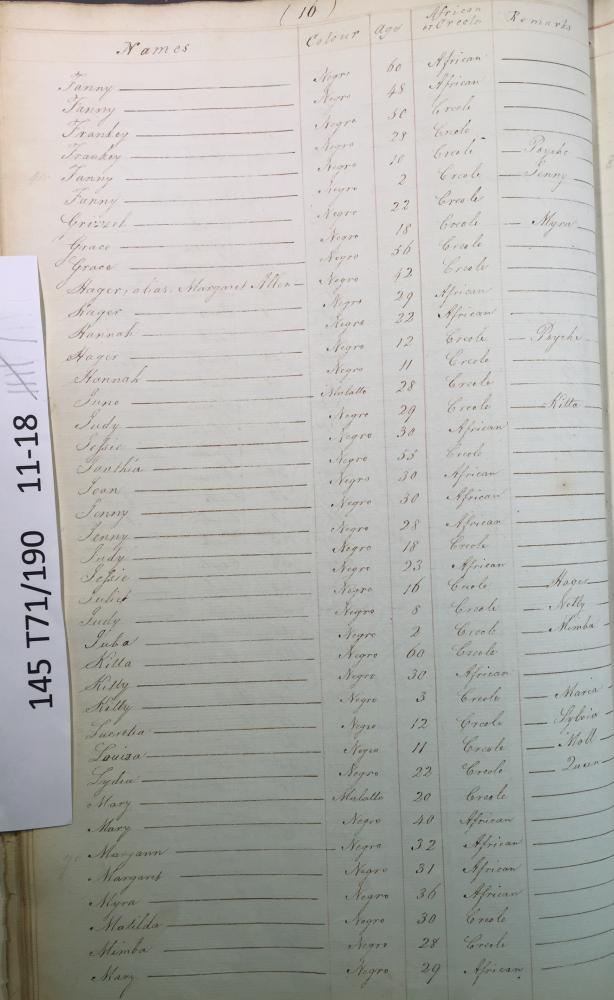 (16)
Names Colour Age African or Creole Remarks
Fanny Negro 60 African
Fanny Negro 48 African
Frankey Negro 50 Creole
Frankey Negro 28 Creole
Fanny Negro 10 Creole Psyche
Fanny Negro 2 Creole Jenny
Grizzel Negro 22 Creole
Grace Negro 18 Creole Myra
Grace Negro 56 Creole
Hager, alias, Margaret Allen Negro 42 Creole
Hager Negro 29 African
Hannah Negro 22 African
Hager Negro 12 Creole Psyche
Hannah Negro 11 Creole
Juno Mulatto 28 Creole
Judy Negro 29 Creole Kitta
Jessie Negro 30 African
Negro 55 Creole
Jean Negro 30 African
Jenny Negro 30 African
Jenny Negro 28 African
Judy Negro 18 Creole
Jessie Negro 23 African
Juliet Negro 16 Creole Hager
Judy Negro 8 Creole Netty
Juba Negro 2 Creole Mimba
Kitta Negro 60 Creole
Kitty Negro 30 African
Kitty Negro 3 Creole Maria
Lucretia Negro 12 Creole Sylvia
Louisa Negro 11 Creole Moll
Lydia Negro 22 Creole Queen
Mary Mulatto 20 Creole
Mary Negro 40 African
Maryann Negro 32 African
Margaret Negro 31 African
Myra Negro 36 African
Matilda Negro 30 Creole
Mimba Negro 28 Creole
Mary Negro 29 African
145 T71/190 11-18